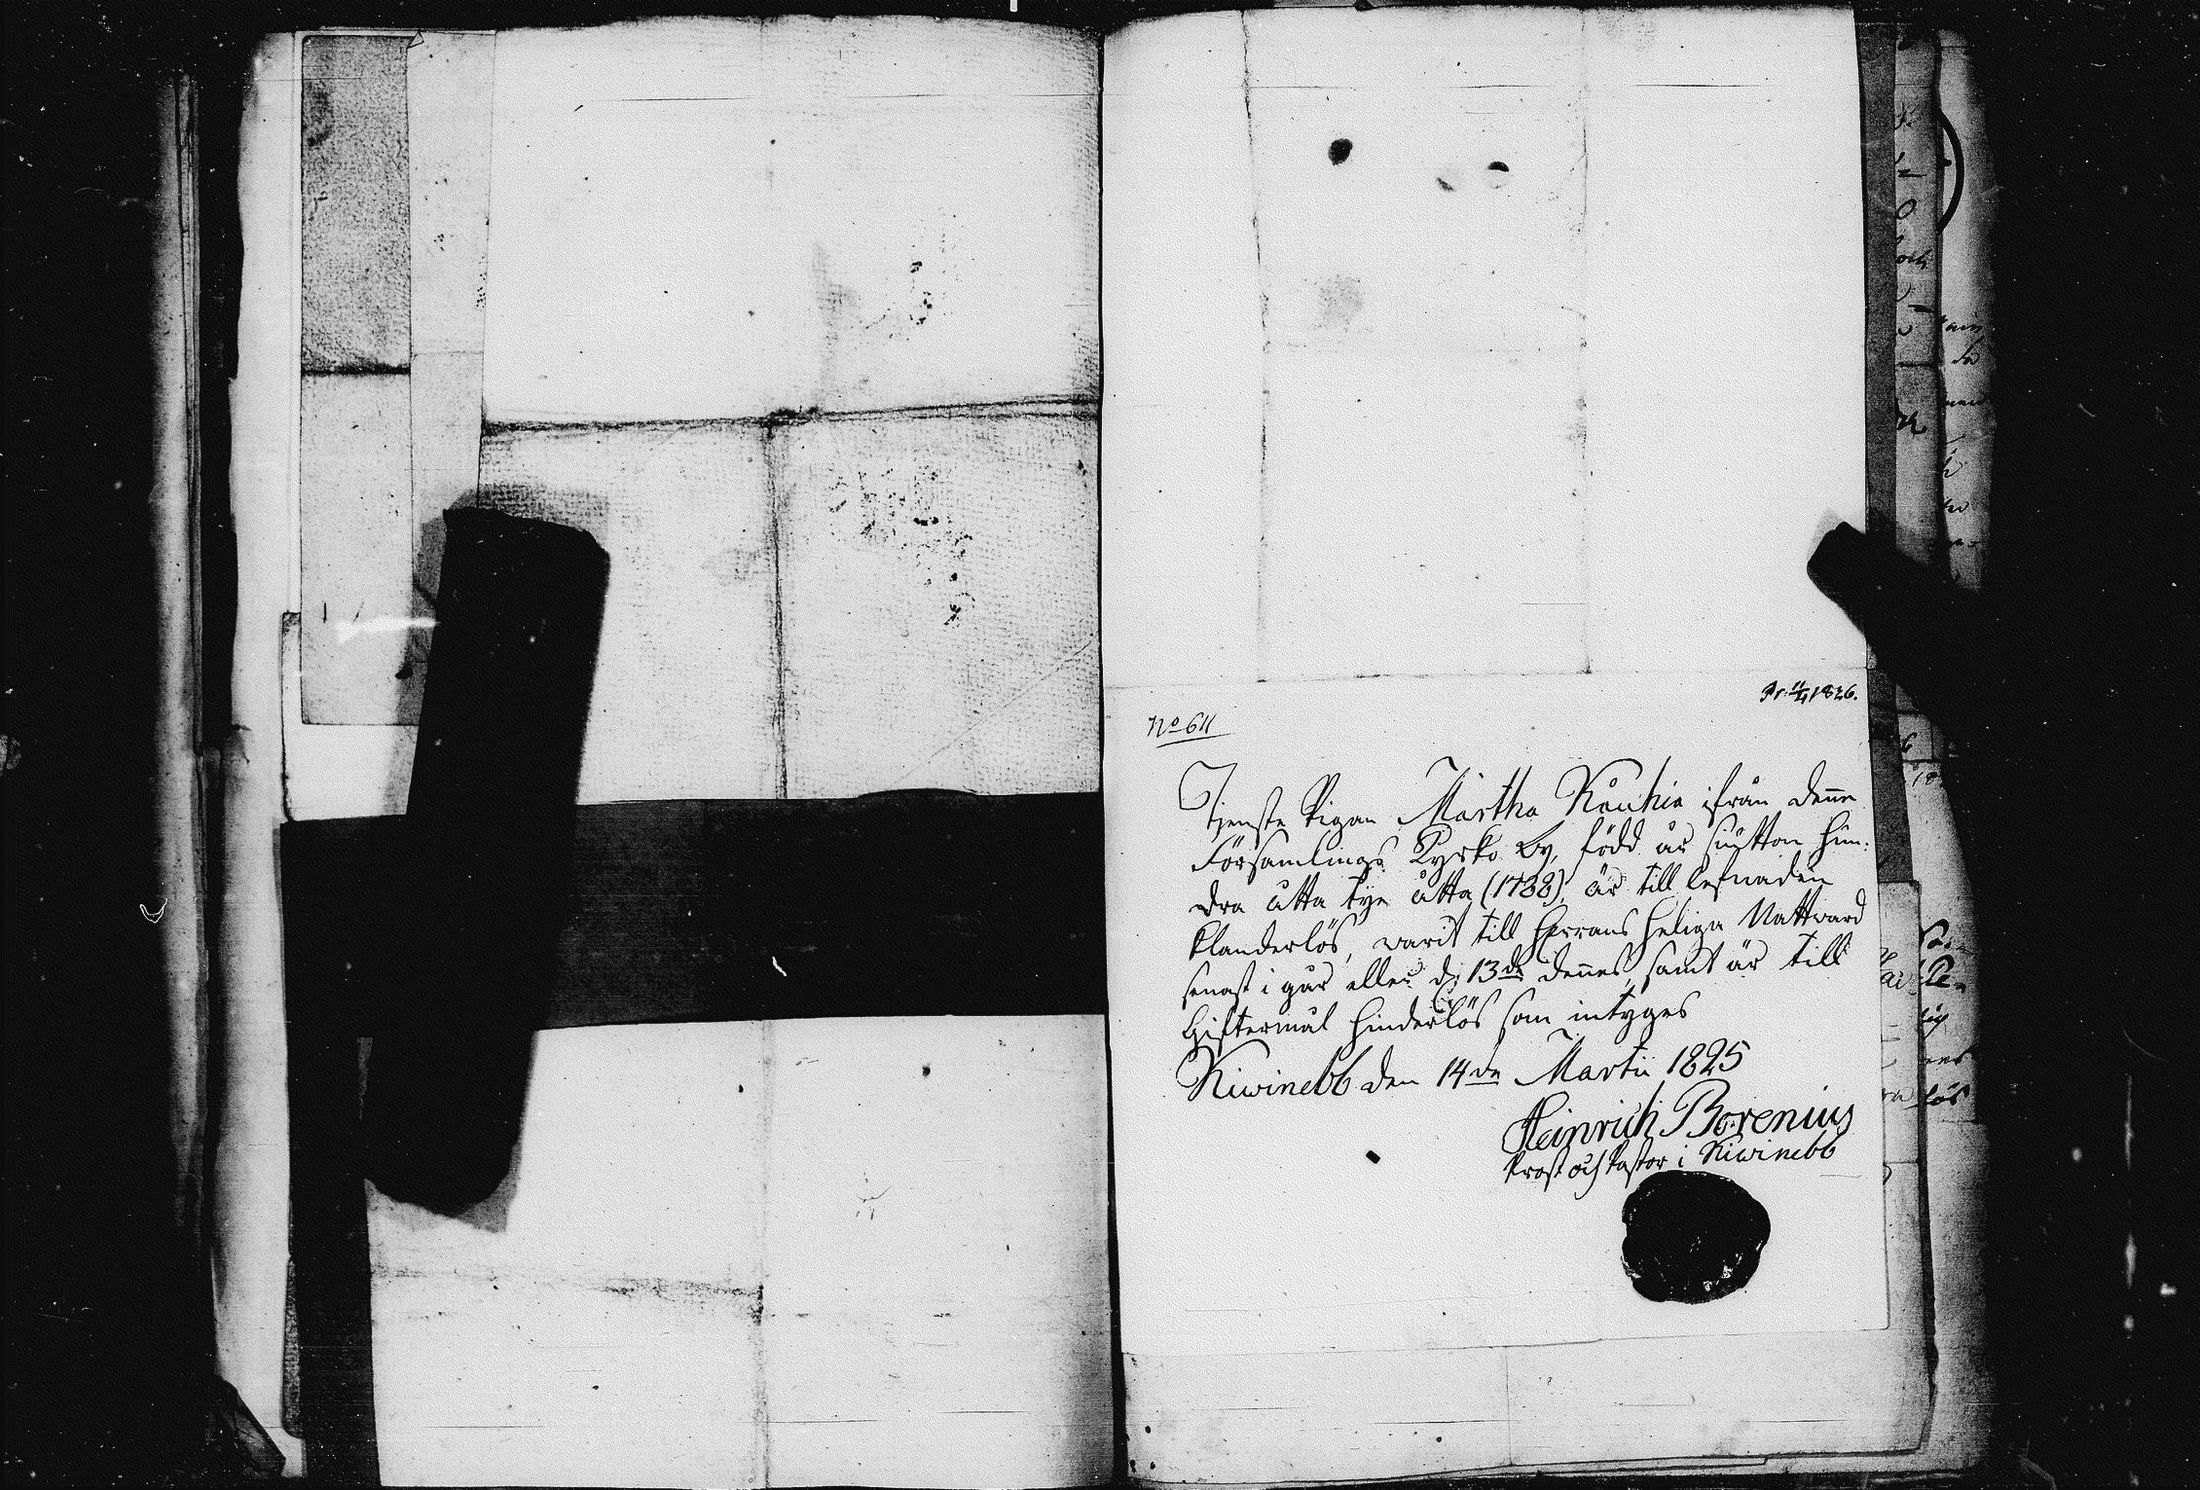 Pr: 11/4 1826.
No 611
Tjenste Pigan Martha Kåuhia ifrån denne
Församlings Kyrko by, född år siutton hun:
dra åtta tye åtta (1788), är till lefnaden
klanderlös, warit till Herrans heliga Nattward
senast i går eller d: 13de dennes, samt är till
Giftermål hinderlös som intyges
Kiwinebb den 14de Martii 1825
Heinrich Borenius
Prost och Pastor i Kiwinebb